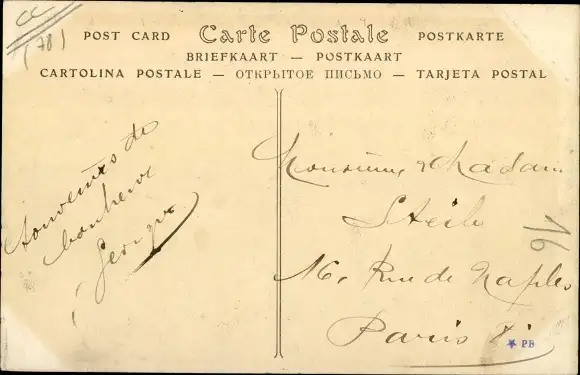 CC
(78)
POST CARD Carte Postale POSTKARTE
BRIEFKAART — POSTKAART
CARTOLINA POSTALE — ОТКРЫТОЕ ПИСЬМО — TARJETA POSTAL
Souvenirs de
bonheur
Georges
Monsieur & Madam
16, Rue de Naples
Paris 8
16
PB